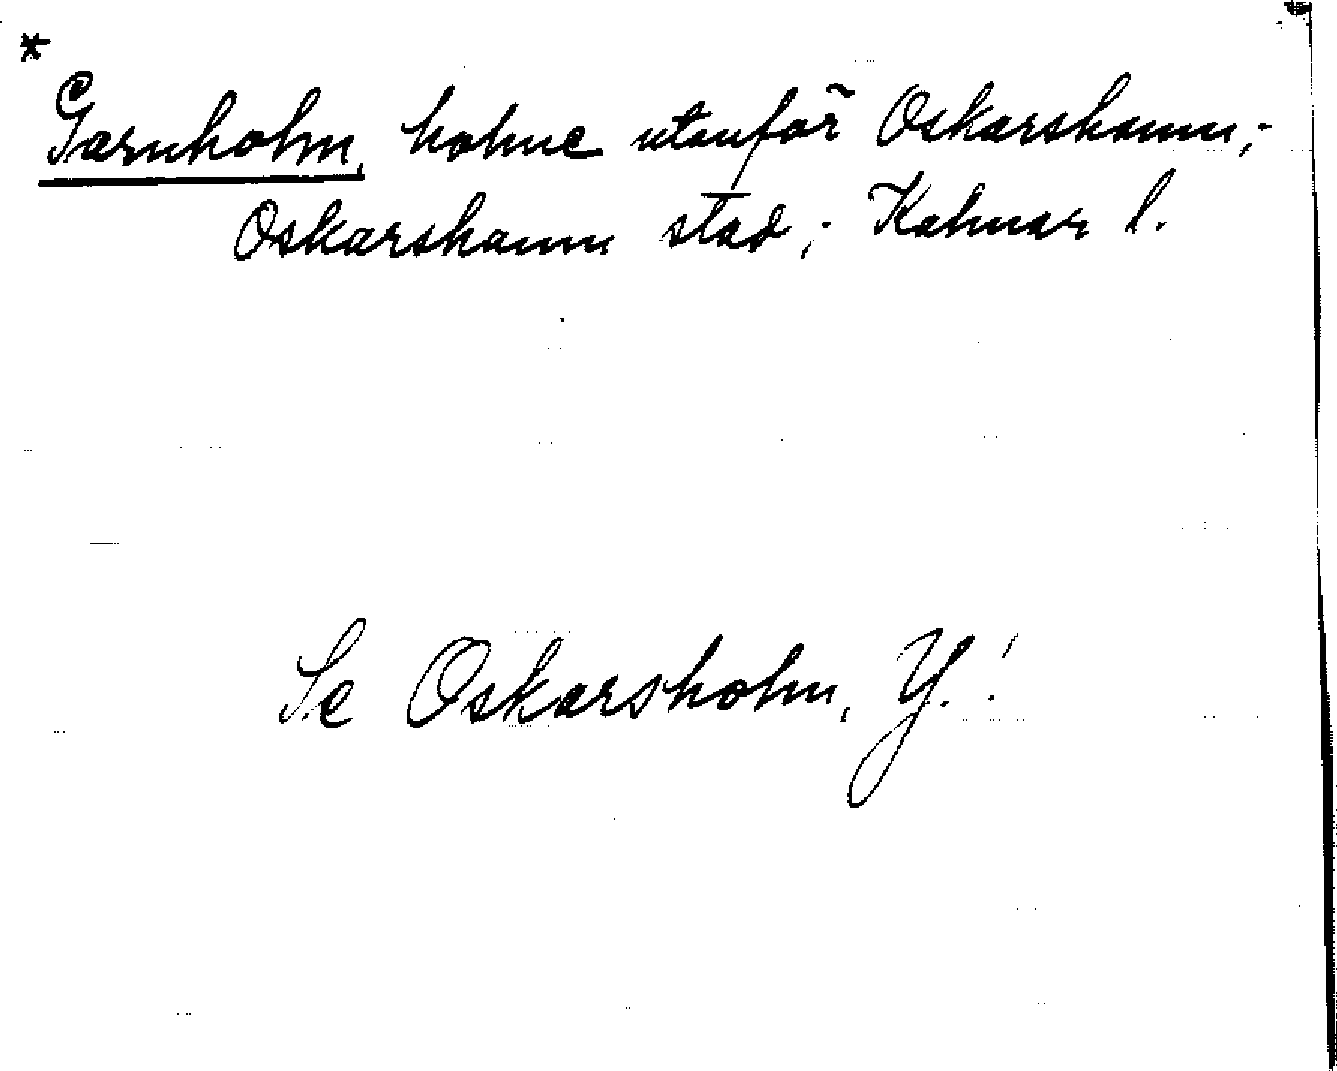 *
Garnholm, holme utanför Oskarshamn;
Oskarshamn stad; Kalmar l.
Se Oskarsholm, Y.!